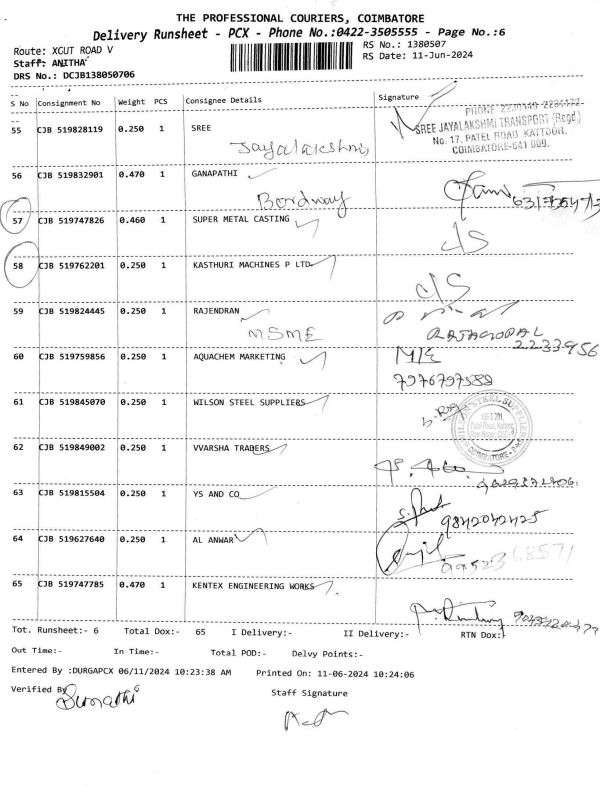 THE PROFESSIONAL COURIERS, COIMBATORE
Delivery Runsheet - PCX - Phone No.:0422-3505555 - Page No.:6
Route: XGUT ROAD V
RS No.: 1380507
Staff: ANITHA
RS Date: 11-Jun-2024
DRS No.: DCJB138050706
S No Consignment No Weight PCS Consignee Details Signature
55 CJB 519828119 0.250 1 SREE
Jayalakshmi
SREE JAYALAKSHMI TRANSPORT (Regd)
No. 17, PATEL ROAD, KATTOOR,
COIMBATORE-641 009.
56 CJB 519832901 0.470 1 GANAPATHI
Bordway
57 CJB 519747826 0.460 1 SUPER METAL CASTING
C/S
58 CJB 519762201 0.250 1 KASTHURI MACHINES P LTD
C/S
59 CJB 519824445 0.250 1 RAJENDRAN
MSME
RAJAGOPAL
2233956
60 CJB 519759856 0.250 1 AQUACHEM MARKETING
M/E
7976797589
61 CJB 519845070 0.250 1 WILSON STEEL SUPPLIERS
62 CJB 519849002 0.250 1 VVARSHA TRADERS
63 CJB 519815504 0.250 1 YS AND CO
9842042425
64 CJB 519627640 0.250 1 AL ANWAR
65 CJB 519747785 0.470 1 KENTEX ENGINEERING WORKS
Tot. Runsheet:- 6 Total Dox:- 65 I Delivery:- II Delivery:- RTN Dox:-
Out Time:- In Time:- Total POD:- Delvy Points:-
Entered By :DURGAPCX 06/11/2024 10:23:38 AM Printed On: 11-06-2024 10:24:06
Verified By
Staff Signature